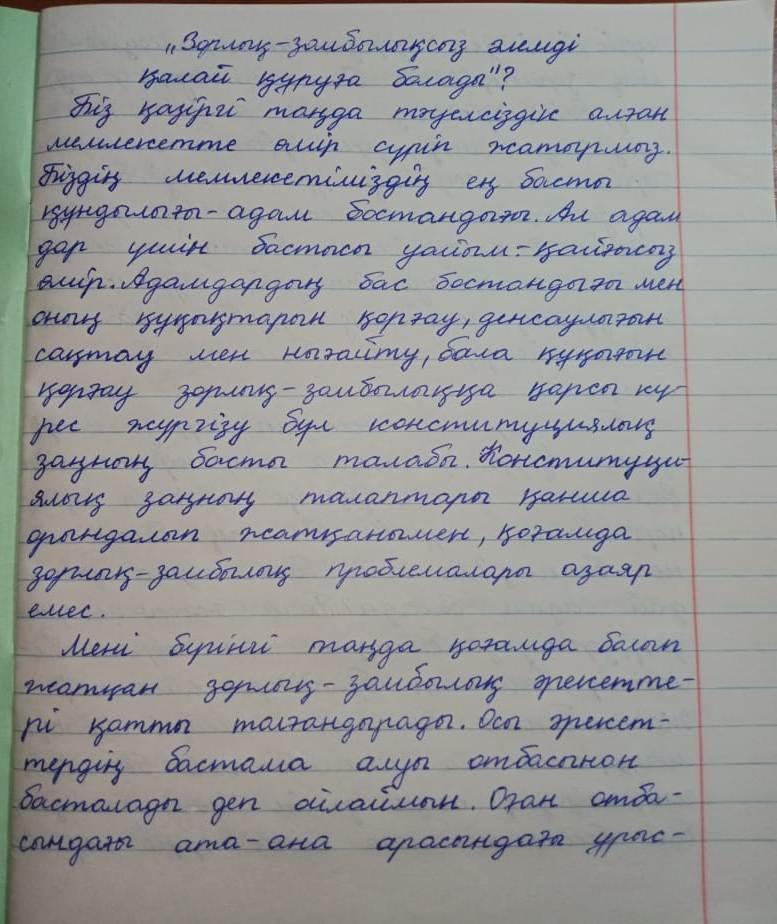 „Зорлық-зомбылықсыз әлемді
қалай құруға болады"?
Біз қазіргі таңда тәуелсіздік алған
мемлекетте өмір сүріп жатырмыз.
Біздің мемлекетіміздің ең басты
құндылығы-адам бостандығы. Ал адам
дар үшін бастысы уайым-қайғысыз
өмір. Адамдардың бас бостандығы мен
оның құқықтарын қорғау, денсаулығын
сақтау мен нығайту, бала құқығын
қорғау зорлық-зомбылыққа қарсы кү-
рес жүргізу бұл конституциялық
заңның басты талабы. Конституци-
ялық заңның талаптары қанша
орындалып жатқанымен, қоғамда
зорлық-зомбылық проблемалары азаяр
емес.
Мені бүгінгі таңда қоғамда болып
жатқан зорлық-зомбылық әрекетте-
рі қатты толғандырады. Осы әрекет-
тердің бастама алуы отбасынан
басталады деп ойлаймын. Оған отба-
сындағы ата-ана арасындағы ұрыс-